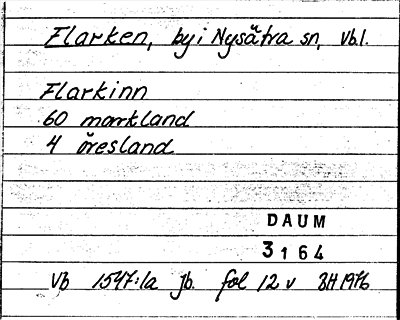 Flarken, by i Nysätra sn, Vb.l.
Flarkinn
60 markland
4 öresland
DAUM
3164
Vb 1547:1a jb. fol 12 v BH 1976